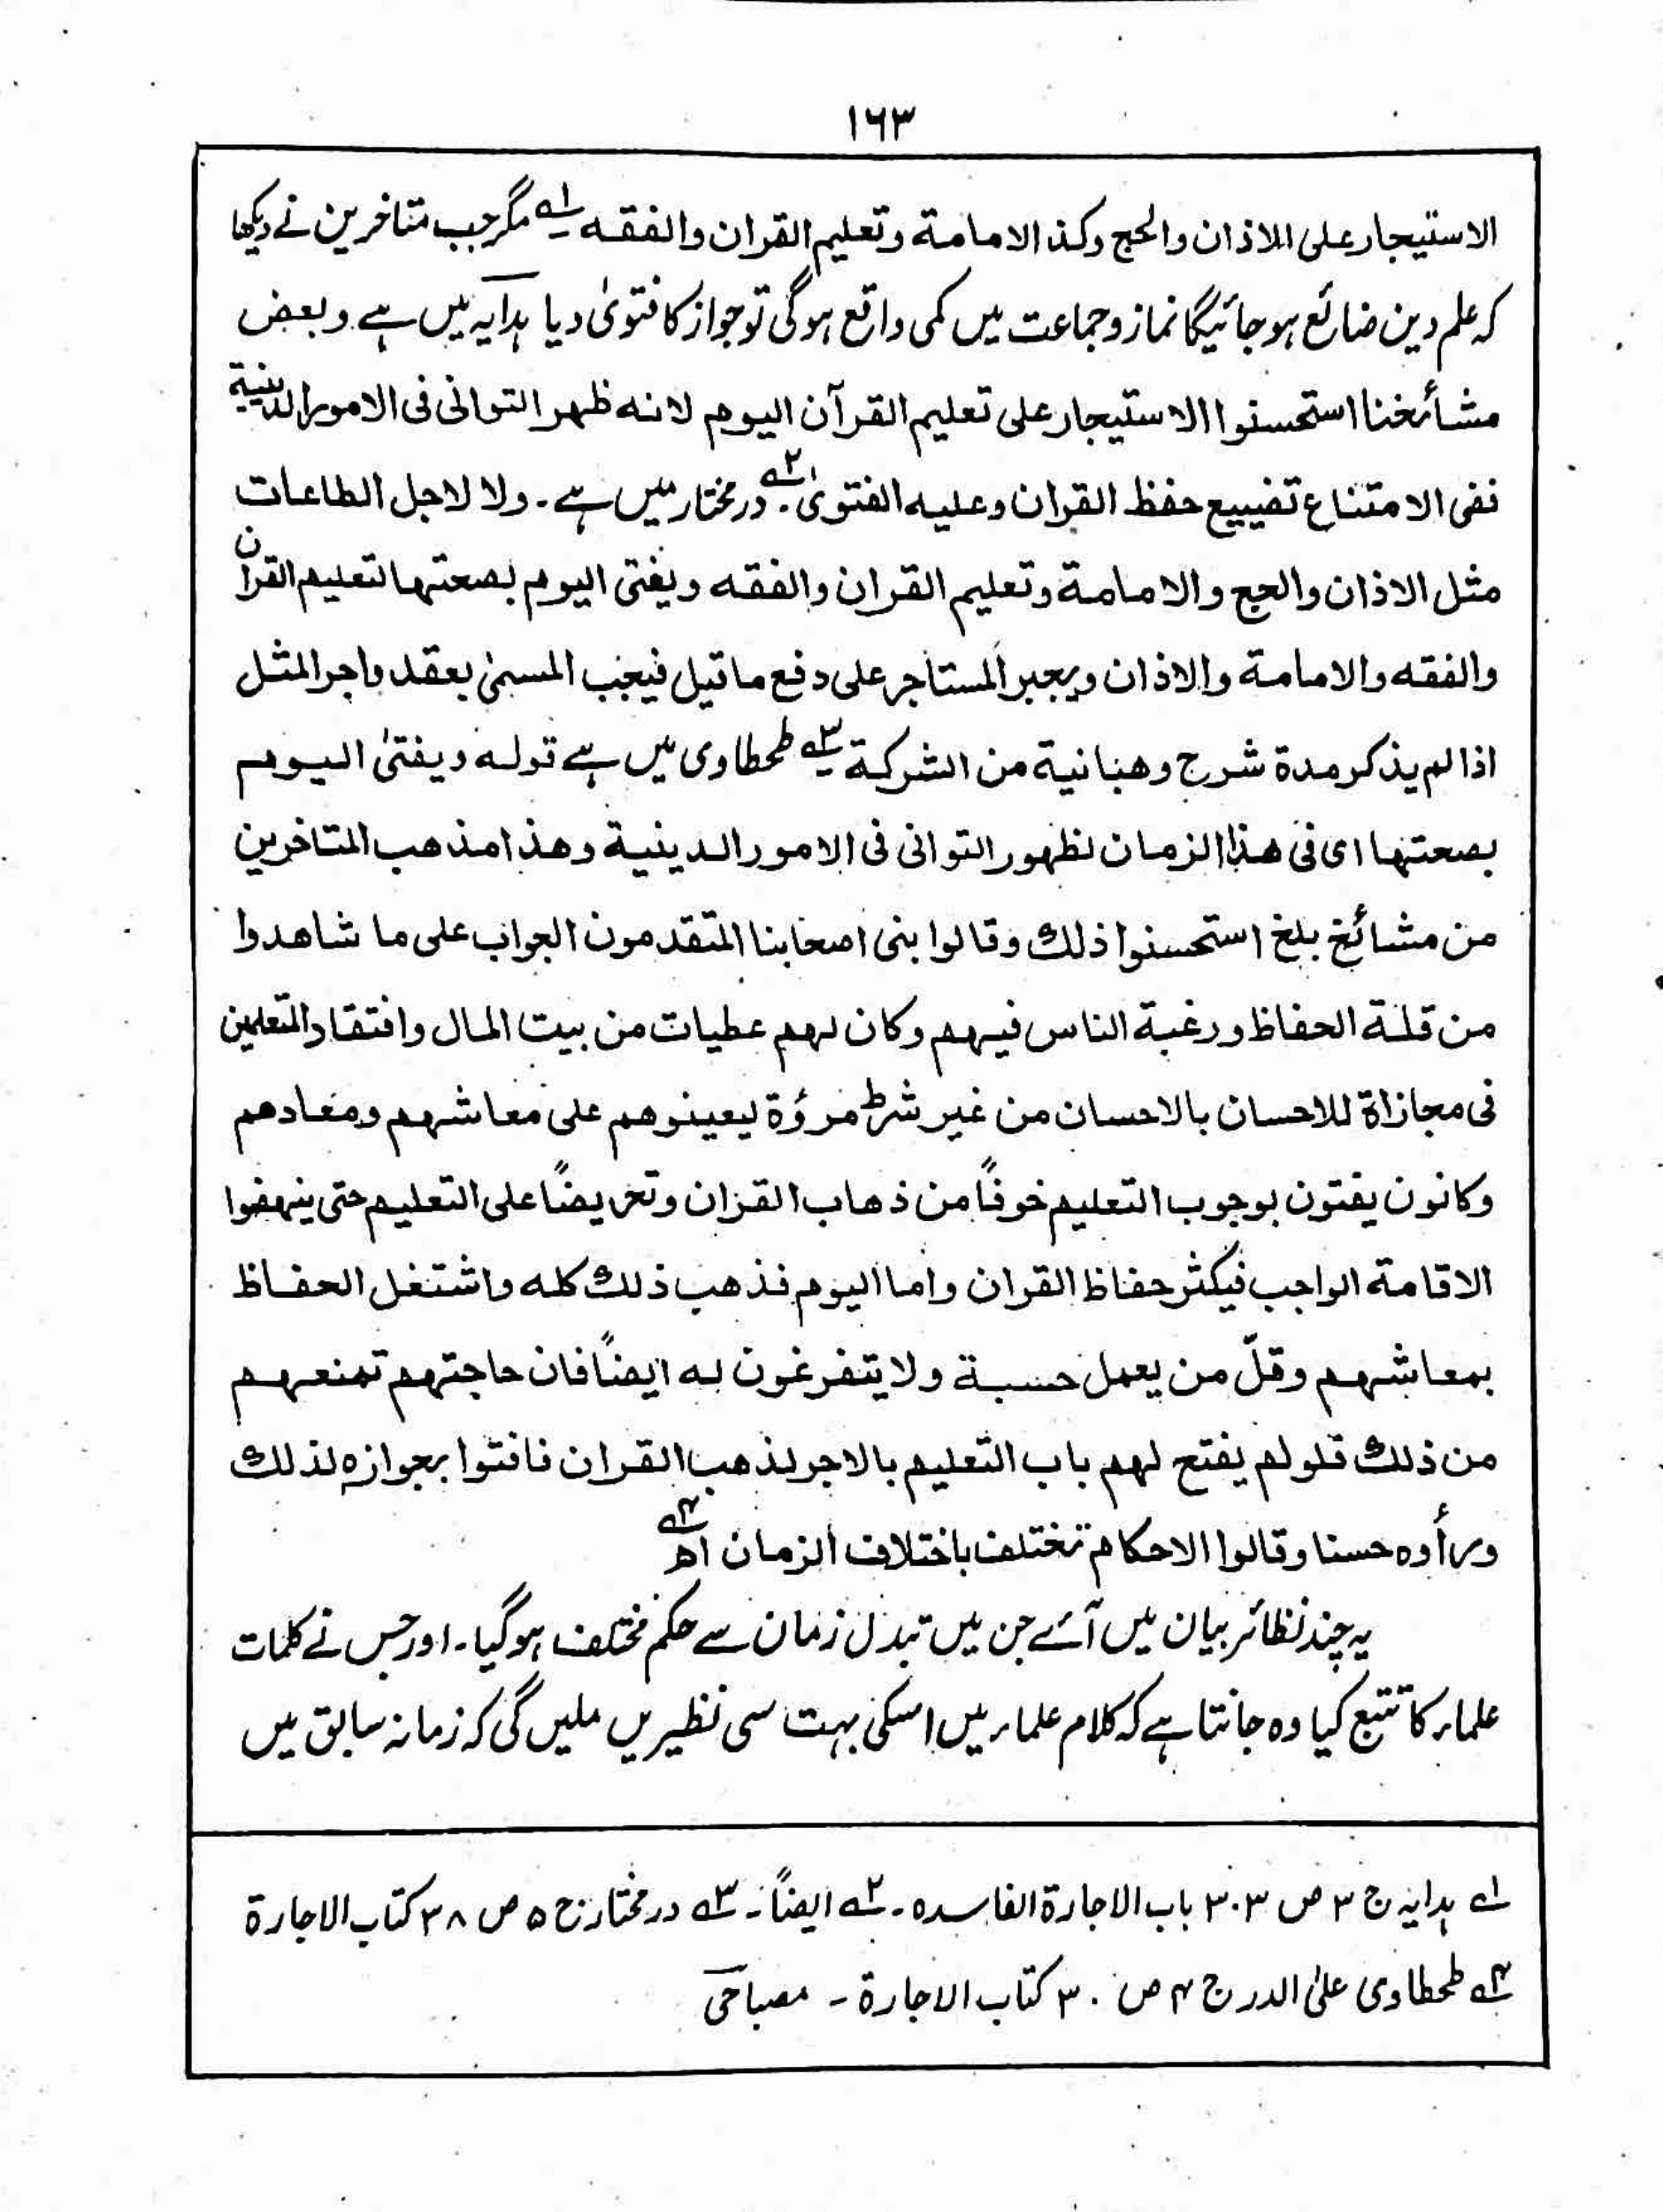 ۱۶۳
الاستیجار علی الاذان والحج وکذ الامامة وتعلیم القران والفقه ۱؎ مگر جب متاخرین نے دیکھا
کہ علم دین ضائع ہو جائیگا نماز و جماعت میں کمی واقع ہوگی تو جواز کا فتویٰ دیا ہدایہ میں ہے وبعض
مشائخنا استحسنوا الاستیجار علی تعلیم القرآن الیوم لانه ظهر التوانی فی الامور الدینیة
ففی الامتناع تضییع حفظ القران وعلیه الفتویٰ ۲؎۔ درمختار میں ہے۔ ولا لاجل الطاعات
مثل الاذان والحج والامامة وتعلیم القران والفقه ویفتی الیوم بصحتها لتعلیم القران
والفقه والامامة والاذان ویجبر المستاجر علی دفع ما قیل فیجب المسمیٰ بعقد واجر المثل
اذا لم یذکر مدة شرح وهبانیة من الشرکة ۳؎ طحطاوی میں ہے قوله ویفتیٰ الیوم
بصحتها ای فی هذا الزمان لظهور التوانی فی الامور الدینیة وهذا مذهب المتاخرین
من مشائخ بلخ استحسنوا ذلك وقالوا بنی اصحابنا المتقدمون الجواب علی ما شاهدوا
من قلة الحفاظ ورغبة الناس فیهم وکان لهم عطیات من بیت المال وافتقاد المتعلمین
فی مجازاة للاحسان بالاحسان من غیر شرط مروٴة لیعینوهم علی معاشهم ومعادهم
وکانون یفتون بوجوب التعلیم خوفاً من ذهاب القران وتحریضاً علی التعلیم حتی ینهضوا
الاقامة الواجب فیکثر حفاظ القران واما الیوم فذهب ذلك کله واشتغل الحفاظ
بمعاشهم وقلّ من یعمل حسبة ولا یتفرغون له ایضاً فان حاجتهم تمنعهم
من ذلك فلو لم یفتح لهم باب التعلیم بالاجر لذهب القران فافتوا بجوازه لذلك
ورأوه حسنا وقالوا الاحکام تختلف باختلاف الزمان اھ ۴؎
یہ چند نظائر بیان میں آئے جن میں تبدل زمان سے حکم مختلف ہوگیا۔ اور جس نے کلمات
علماء کا تتبع کیا وہ جانتا ہے کہ کلام علماء میں اسکی بہت سی نظیریں ملیں گی کہ زمانہ سابق میں
۱؎ ہدایہ ج ۳ ص ۳۰۳ باب الاجارة الفاسدہ۔ ۲؎ ایضاً۔ ۳؎ درمختار ج ۵ ص ۳۸ کتاب الاجارة
۴؎ طحطاوی علیٰ الدر ج ۴ ص ۳۰ کتاب الاجارة۔ مصباحی